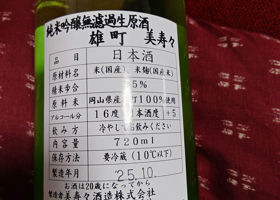 純米吟醸無濾過生原酒
雄町 美寿々
品目 日本酒
原材料名 米(国産)、米麹(国産米)
精米歩合 5%
原料米 岡山県産 100%使用
アルコール分 16度 日本酒度 +5
飲み方 冷やしてお飲みください
内容量 720ml
保存方法 要冷蔵(10℃以下)
製造年月 '25.10.
お酒は20歳になってから
製造者 美寿々酒造株式会社